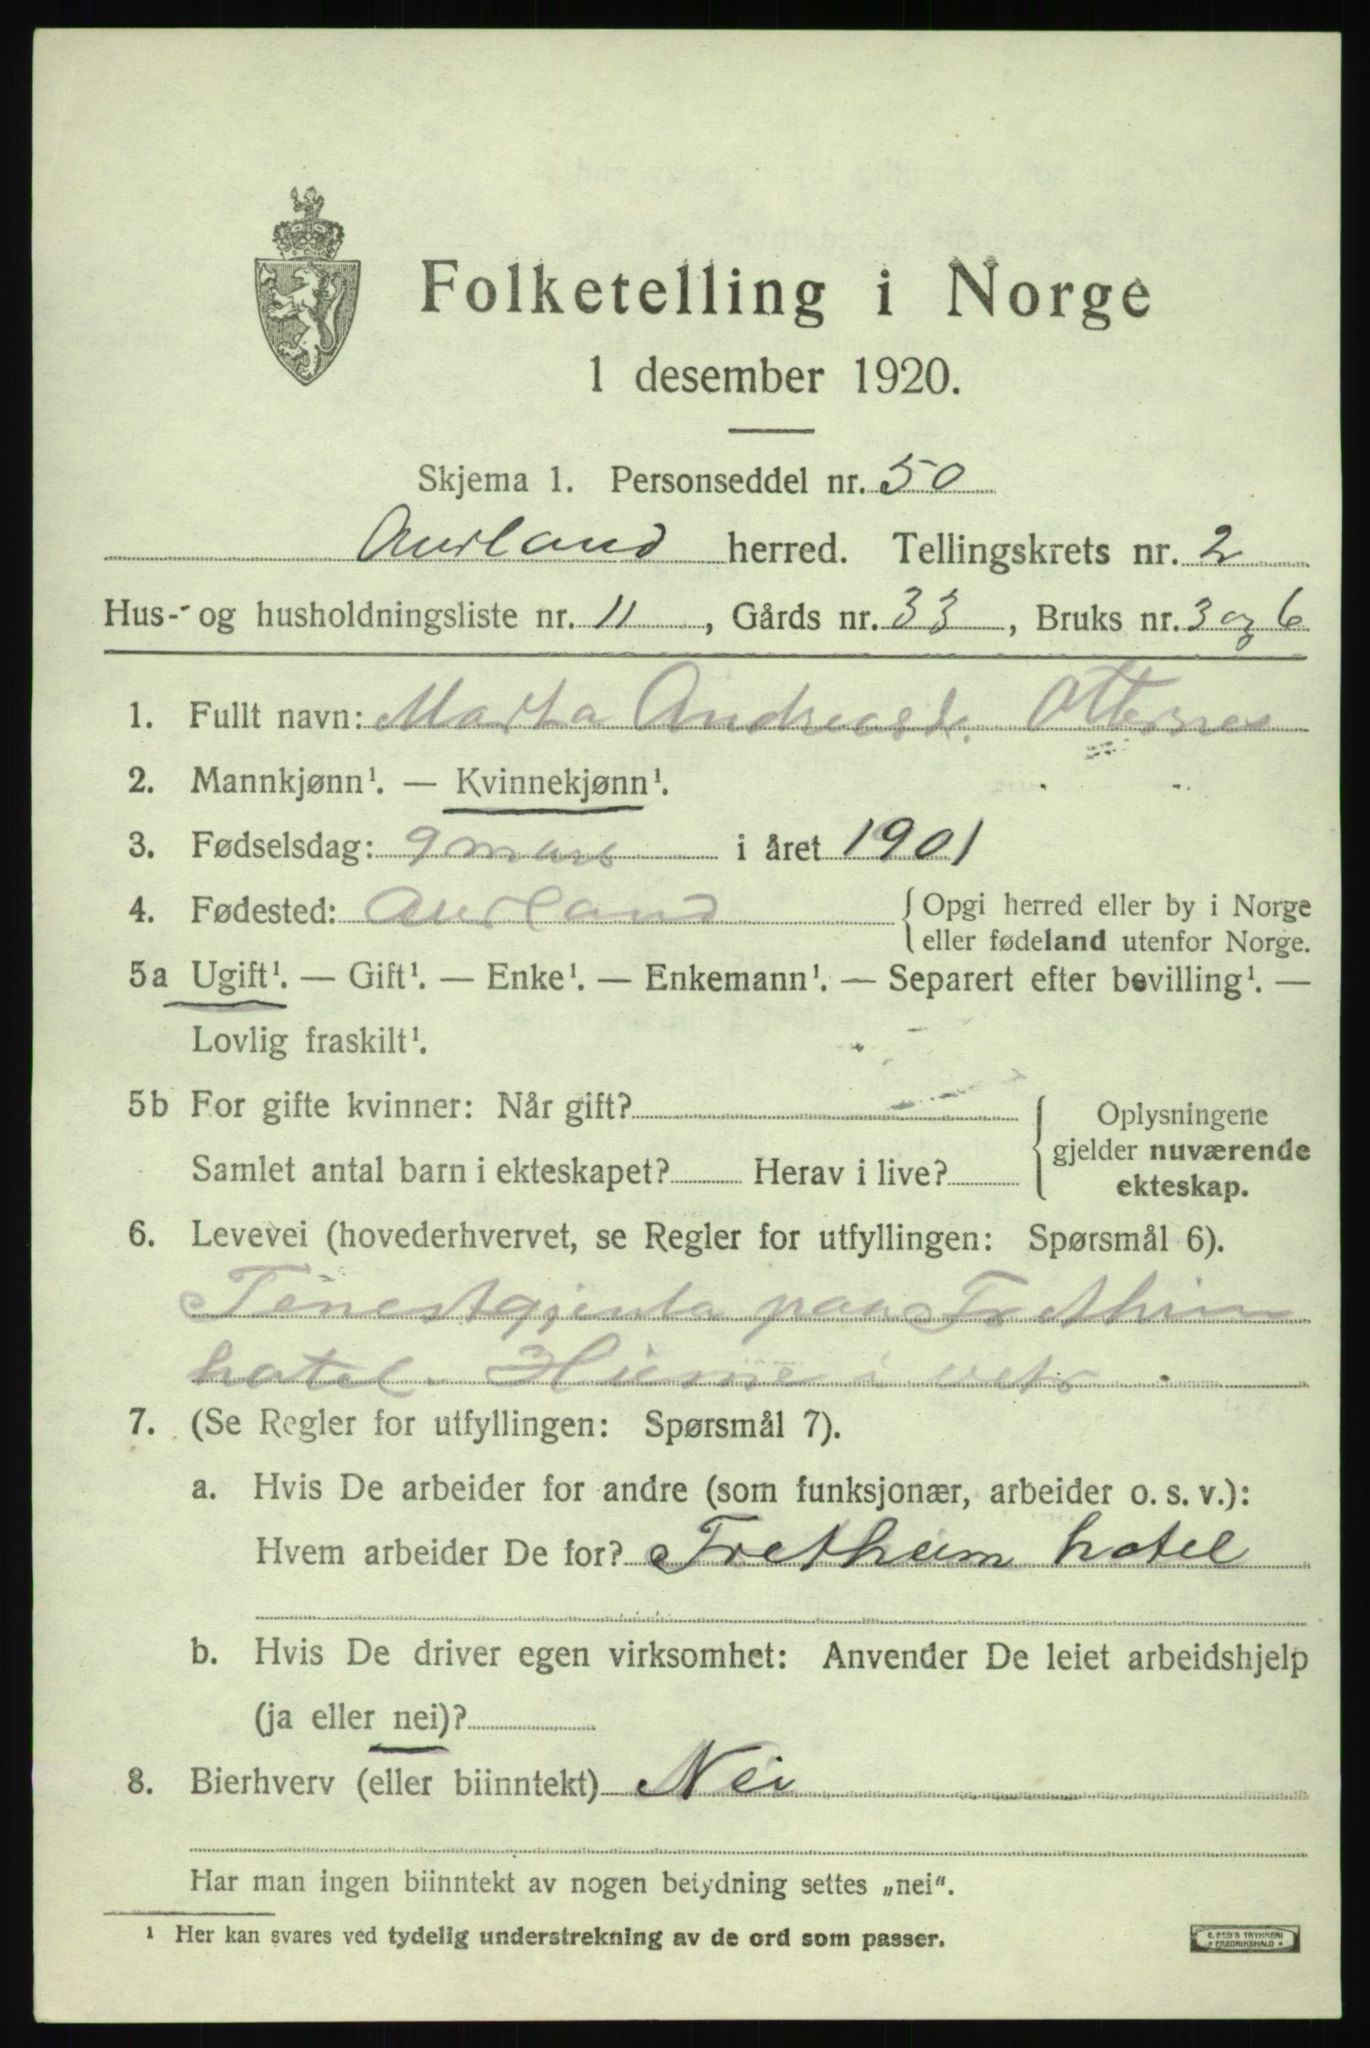 Folketelling i Norge
1 desember 1920.
Skjema 1. Personseddel nr. 50
Aurland herred. Tellingskrets nr. 2
Hus- og husholdningsliste nr. 11, Gårds nr. 33, Bruks nr. 3 og 6
1. Fullt navn: Marta Andreasd. Otternes
2. Mannkjønn¹. — Kvinnekjønn¹.
3. Fødselsdag: 9 mars i året 1901
4. Fødested: Aurland {Opgi herred eller by i Norge
eller fødeland utenfor Norge.
5a Ugift¹. — Gift¹. — Enke¹. — Enkemann¹. — Separert efter bevilling¹. —
Lovlig fraskilt¹.
5b For gifte kvinner: Når gift?
Samlet antal barn i ekteskapet? Herav i live?
{Oplysningene
gjelder nuværende
ekteskap.
6. Levevei (hovederhvervet, se Regler for utfyllingen: Spørsmål 6).
Tenestgjenta paa Fretheim
hotel. Hieme i vetr
7. (Se Regler for utfyllingen: Spørsmål 7).
a. Hvis De arbeider for andre (som funksjonær, arbeider o. s. v.):
Hvem arbeider De for? Fretheim hotel
b. Hvis De driver egen virksomhet: Anvender De leiet arbeidshjelp
(ja eller nei)?
8. Bierhverv (eller biinntekt) Nei
Har man ingen biinntekt av nogen betydning settes „nei“.
¹ Her kan svares ved tydelig understrekning av de ord som passer.
E. SEM'S TRYKKERI
FREDRIKSHALD